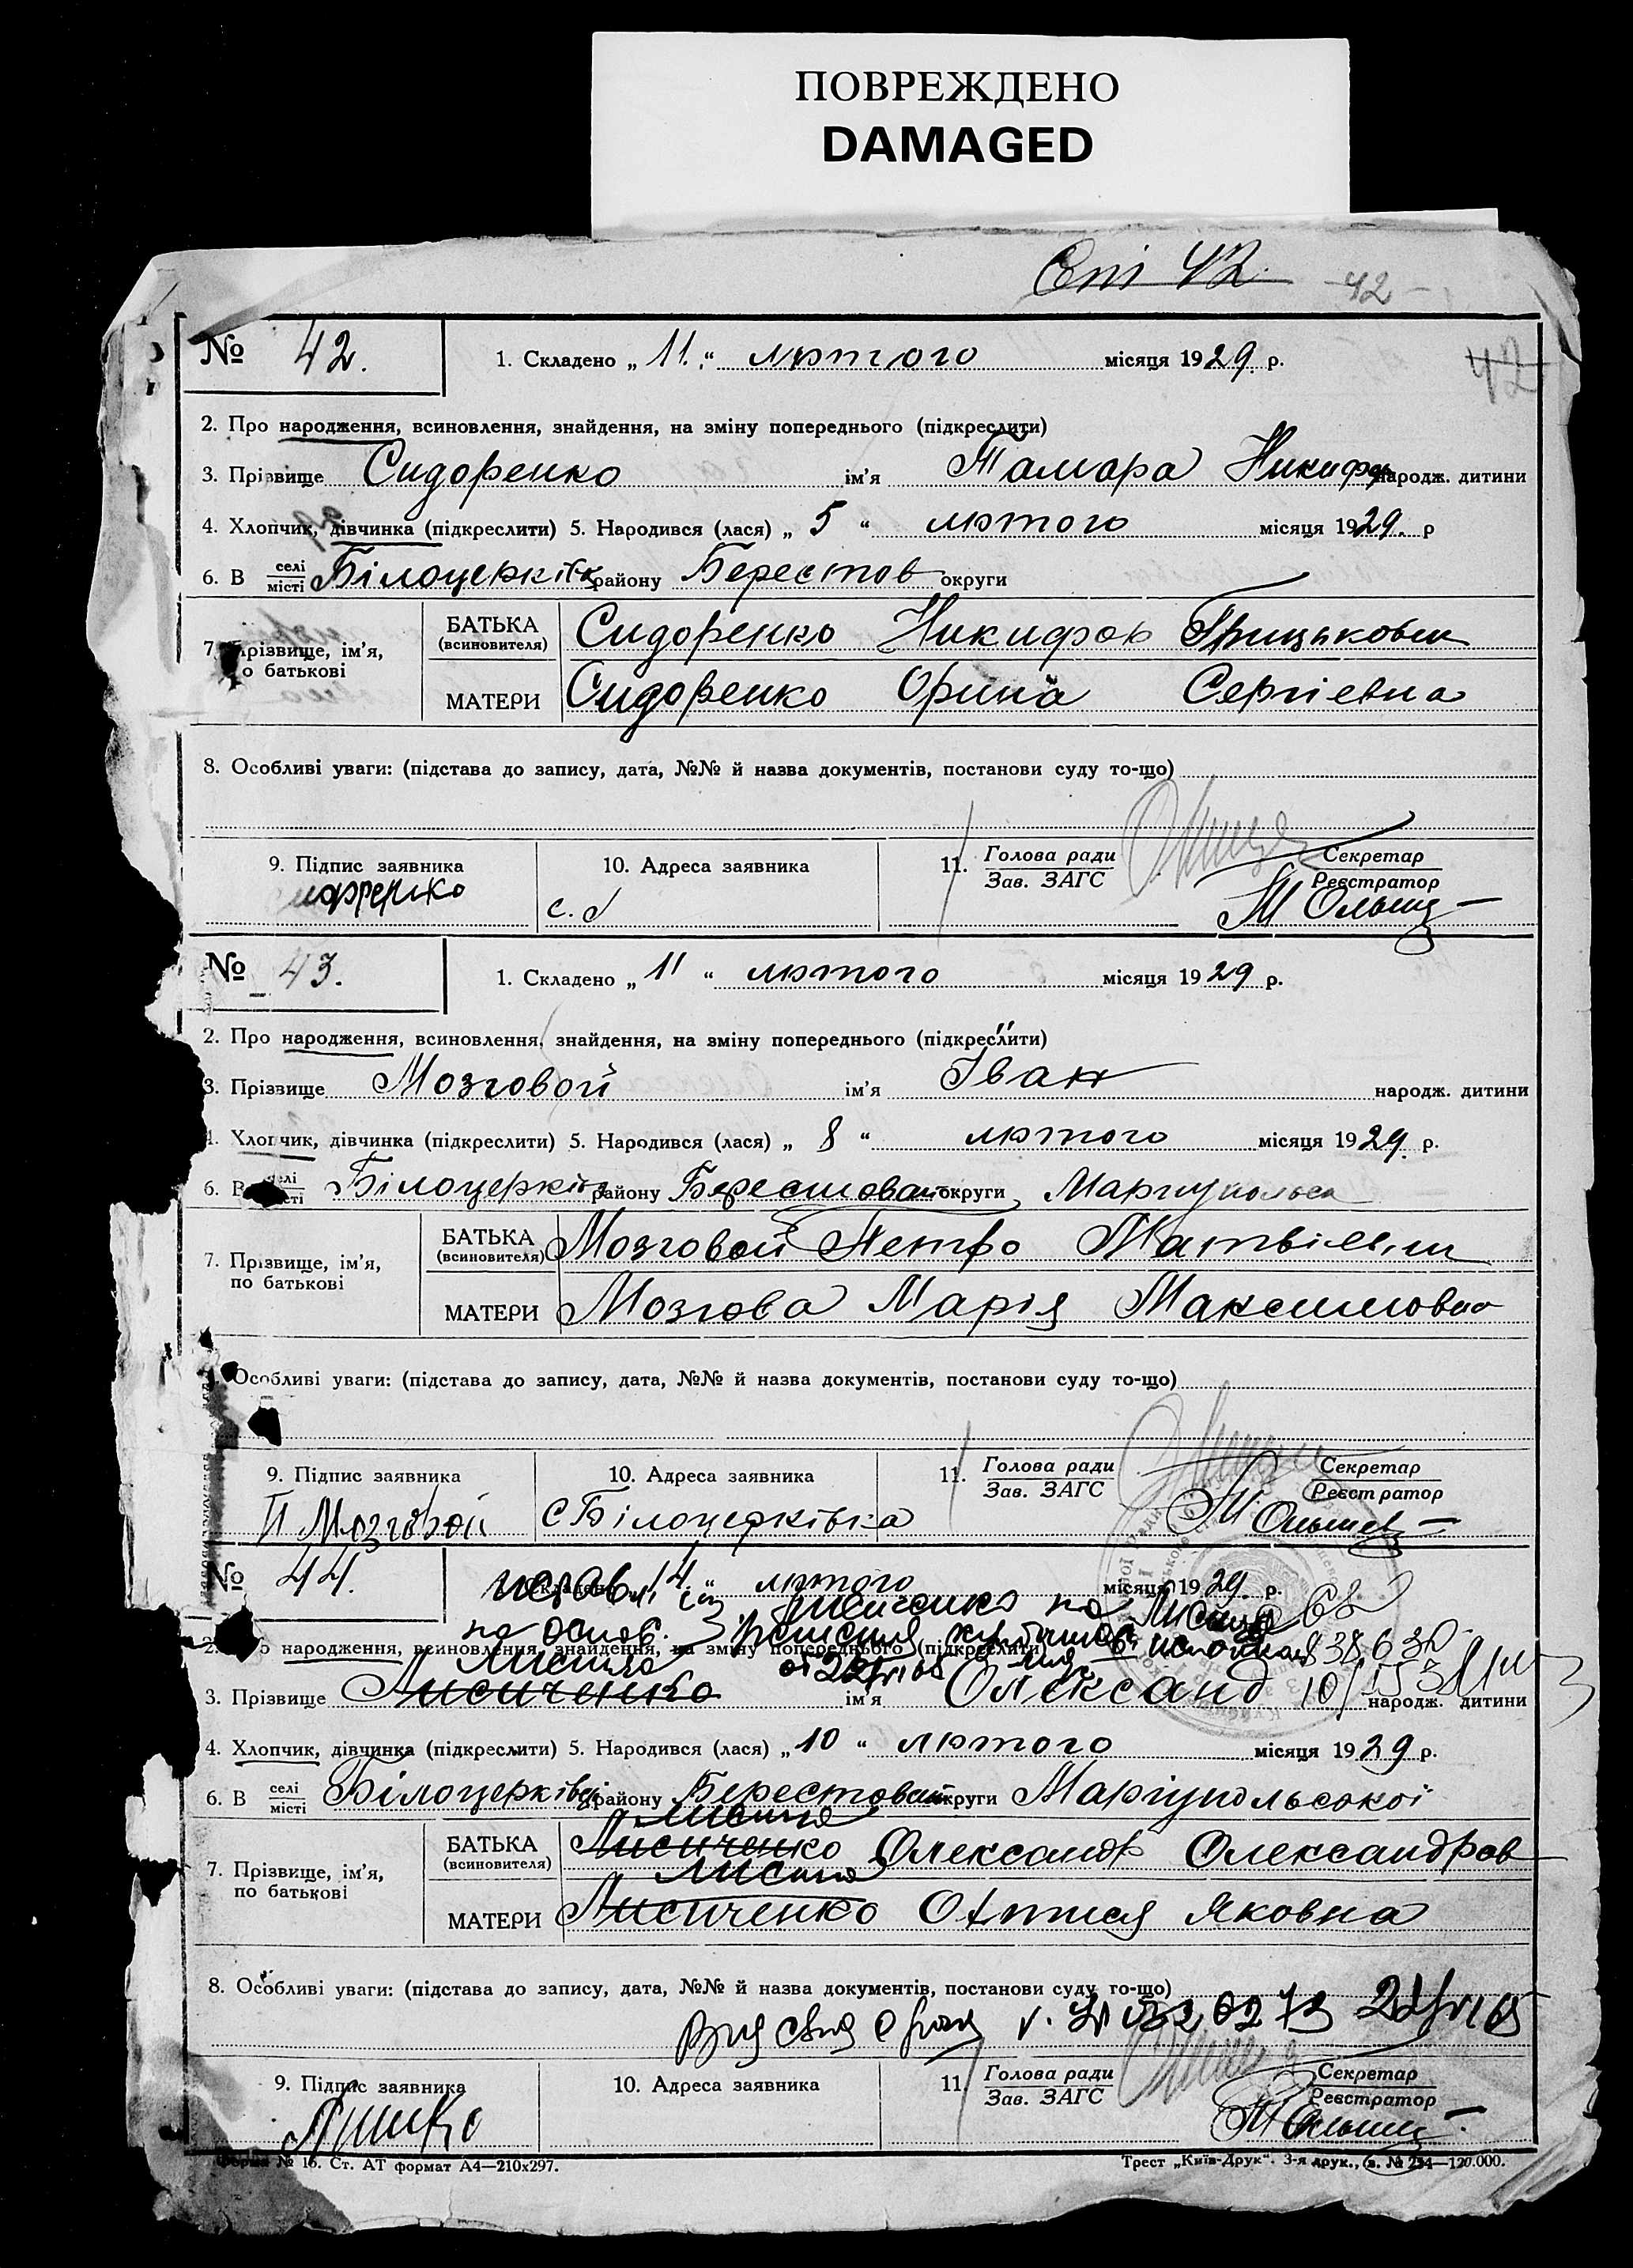 ПОВРЕЖДЕНО
DAMAGED
42
42
№ 42. 1. Складено „11.“ лютого місяця 1929. р.
42
2. Про народження, всиновлення, знайдення, на зміну попереднього (підкреслити)
3. Прізвище Сидоренко ім'я Тамара Никифор народж. дитини
4. Хлопчик, дівчинка (підкреслити) 5. Народився (лася) „5“ лютого місяця 1929. р
6. В селі місті Білоцерківка району Берестов округи
7. Прізвище, ім'я, по батькові БАТЬКА (всиновителя) Сидоренко Никифор Грицькович
МАТЕРИ Сидоренко Орина Сергіевна
8. Особливі уваги: (підстава до запису, дата, №№ й назва документів, постанови суду то-що)
9. Підпис заявника 10. Адреса заявника 11. Голова ради Зав. ЗАГС Секретар Реєстратор
№ 43. 1. Складено „11“ лютого місяця 1929 р.
2. Про народження, всиновлення, знайдення, на зміну попереднього (підкреслити)
3. Прізвище Мозговой ім'я Іван народж. дитини
4. Хлопчик, дівчинка (підкреслити) 5. Народився (лася) „8“ лютого місяця 1929. р.
6. В селі місті Білоцерківка району Берестовой округи Маріупольск
7. Прізвище, ім'я, по батькові БАТЬКА (всиновителя) Мозговой Петро Матвіевич
МАТЕРИ Мозгова Марія Максимовна
Особливі уваги: (підстава до запису, дата, №№ й назва документів, постанови суду то-що)
9. Підпис заявника 10. Адреса заявника 11. Голова ради Зав. ЗАГС Секретар Реєстратор
П Мозговой с Білоцерківка
№ 44. Складено „14“ лютого місяця 1929. р.
на основ.
2. Про народження, всиновлення, знайдення, на зміну попереднього (підкреслити)
Лисица
3. Прізвище Лисиченко ім'я Олександ народж. дитини
4. Хлопчик, дівчинка (підкреслити) 5. Народився (лася) „10“ лютого місяця 1929 р.
6. В селі місті Білоцерківці району Берестовой округи Маріупольської
Лисица
7. Прізвище, ім'я, по батькові БАТЬКА (всиновителя) Лисиченко Олександр Олександров
Лисица
МАТЕРИ Лисиченко Яковна
8. Особливі уваги: (підстава до запису, дата, №№ й назва документів, постанови суду то-що)
9. Підпис заявника 10. Адреса заявника 11. Голова ради Зав. ЗАГС Секретар Реєстратор
Форма № 16. Ст. АТ формат А4—210х297. Трест „Київ-Друк“. 3-я друк., з. № 254—120.000.